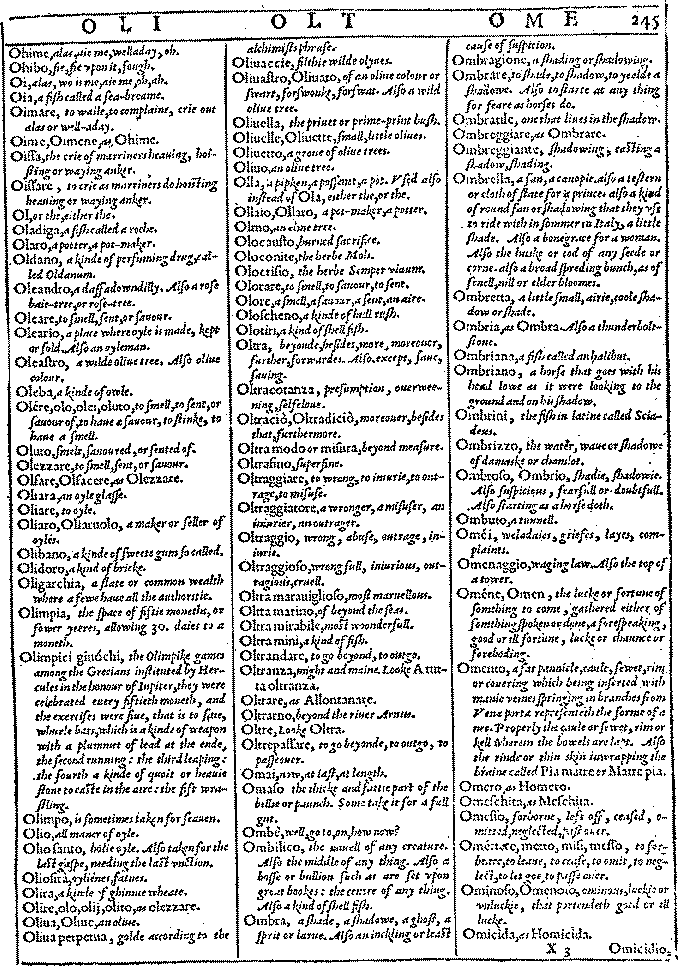 OLI OLT OME 245
Ohime, alas, aie me, welladay, oh.
Ohibo, fie, fie vpon it, faugh.
Oi, alas, wo is me, aie me, oh, ah.
Oia, a fish called a sea-breame.
Oimare, to waile, to complaine, crie out
alas or well-aday.
Oime, Oimene, as, Ohime.
Oissa, the crie of marriners heauing, hoi-
sting or waying anker.
Oissare, to crie as marriners do hoisting
heauing or waying anker.
Ol, or the, either the.
Oladiga, a fish called a roche.
Olaro, a potter, a pot-maker.
Oldano, a kinde of perfuming drug, cal-
led Oldanum.
Oleandro, a daffadowndilly. Also a rose
baie-tree, or rose-tree.
Oleare, to smell, sent, or sauour.
Oleario, a place where oyle is made, kept
or sold. Also an oyleman.
Oleastro, a wilde oliue tree. Also oliue
colour.
Oleba, a kinde of owle.
Olére, olo, olei, oluto, to smell, to sent, or
sauour of, to haue a sauour, to stinke, to
haue a smell.
Oluto, smelt, sauoured, or sented of.
Olezzare, to smell, sent, or sauour.
Olfare, Olfacere, as Olezzare.
Oliara, an oyle glasse.
Oliare, to oyle.
Oliaro, Oliaruolo, a maker or seller of
oyles.
Olibano, a kinde of sweete gum so called.
Olidoro, a kind of bricke.
Oligarchia, a state or common wealth
where a fewe haue all the authoritie.
Olimpia, the space of fiftie moneths, or
fower yeeres, allowing 30. daies to a
moneth.
Olimpici giuóchi, the Olimpike games
among the Grecians instituted by Her-
cules in the honour of Iupiter, they were
celebrated euery fiftieth moneth, and
the exercises were fiue, that is to saie,
whirle bats, which is a kinde of weapon
with a plummet of lead at the ende,
the second running: the third leaping:
the fourth a kinde of quoit or heauie
stone to caste in the aire: the fift wra-
stling.
Olimpo, is sometimes taken for heauen.
Olio, all maner of oyle.
Olio santo, holie oyle. Also taken for the
last gaspe, needing the last vnction.
Oliosità, oylienes, fatnes.
Olira, a kinde of ghinnie wheate.
Olire, olo, olij, olito, as olezzare.
Oliua, Oliue, an oliue.
Oliua perpetua, golde according to the
alchimists phrase.
Oliuaccie, filthie wilde olyues.
Oliuastro, Oliuato, of an oliue colour or
swart, forswonke, forswat. Also a wild
oliue tree.
Oliuella, the priuet or prime-print bush.
Oliuelle, Oliuette, small, little oliues.
Oliuetto, a groue of oliue trees.
Oliuo, an oliue tree.
Olla, a pipken, a possenet, a pot. Vsed also
instead of Ola, either the, or the.
Ollaio, Ollaro, a pot-maker, a potter.
Olmo, an elme tree.
Olocausto, burned sacrifice.
Oloconite, the herbe Mols.
Olocrisio, the herbe Semper viuum.
Olorare, to smell, to sauour, to sent.
Olore, a smell, a sauour, a sent, an aire.
Oloscheno, a kinde of bull rush.
Olotiri, a kinde of shell fish.
Oltra, beyonde, besides, more, moreouer,
further, forwardes. Also, except, saue,
sauing.
Oltracotanza, presumption, ouerwee-
ning, selfeloue.
Oltraciò, Oltradiciò, moreouer, besides
that, furthermore.
Oltra modo or misura, beyond measure.
Oltrafino, superfine.
Oltraggiare, to wrong, to iniurie, to out-
rage, to misuse.
Oltraggiatore, a wronger, a misuser, an
iniurier, an outrager.
Oltraggio, wrong, abuse, outrage, in-
iurie.
Oltraggioso, wrong full, iniurious, out-
ragious, cruell.
Oltra marauiglioso, most maruellous.
Oltra marino, of beyond the seas.
Oltra mirabile, most wonderfull.
Oltra mini, a kind of fish.
Oltrandare, to go beyond, to outgo.
Oltranza, might and maine. Looke A tut-
ta oltranza.
Oltrare, as Allontanare.
Oltrarno, beyond the riuer Arnus.
Oltre, Looke Oltra.
Oltrepassare, to go beyonde, to outgo, to
passe ouer.
Omai, now, at last, at length.
Omaso the thicke and fattie part of the
bellie or paunch. Some take it for a full
gut.
Ombè, well, go to, on, how now?
Ombilico, the nauell of any creature.
Also the middle of any thing. Also a
bosse or bullion such as are set vpon
great bookes: the centre of any thing.
Also a kind of shell fish.
Ombra, a shade, a shadowe, a ghost, a
sprit or larue. Also an inckling or least
cause of suspicion.
Ombragione, a shading or shadowing.
Ombrare, to shade, to shadow, to yealde a
shadowe. Also to starte at any thing
for feare as horses do.
Ombratile, one that liues in the shadow.
Ombreggiare, as Ombrare.
Ombreggiante, shadowing, casting a
shadow, shading.
Ombrella, a fan, a canopie. also a testern
or cloth of state for a prince. also a kind
of round fan or shadowing that they vse
to ride with in sommer in Italy, a little
shade. Also a bonegrace for a woman.
Also the huske or cod of any seede or
corne. also a broad spreding bunch, as of
fenell, nill or elder bloomes.
Ombretta, a little small, airie, coole sha-
dow or shade.
Ombria, as Ombra. Also a thunderbolt-
stone.
Ombriana, a fish called an halibut.
Ombriano, a horse that goes with his
head lowe as it were looking to the
ground and on his shadow.
Ombrini, the fish in latine called Scia-
deus.
Ombrizzo, the water, waue or shadowe
of damaske or chamlot.
Ombroso, Ombrio, shadie, shadowie.
Also suspicious, fearfull or doubtfull.
Also starting as a horse doth.
Ombuto, a tunnell.
Oméi, weladaies, griefes, layes, com-
plaints.
Omenaggio, waging law. Also the top of
a tower.
Oméne, Omen, the lucke or fortune of
somthing to come, gathered either of
somthing spoken or done, a forespeaking,
good or ill fortune, lucke or chance or
foreboding.
Omento, a far pannicle, caule, sewet, rim
or couering which being inserted with
manie veines springing in branches from
Vena porta representeth the forme of a
net. Properly the caule or sewet, rim or
kell wherein the bowels are lapt. Also
the rinde or thin skin inwrapping the
braine called Pia matre or Matre pia.
Omero, as Homero.
Omeschita, as Meschita.
Omesso, forborne, left off, ceased, o-
mitted, neglected, past ouer.
Ométtere, metto, misi, messo, to for-
beare, to leaue, to cease, to omit, to neg-
lect, to let goe, to passe ouer.
Ominoso, Omenoso, ominous, luckie or
vnluckie, that pretendeth good or ill
lucke.
Omicida, as Homicida.
X 3 Omicidio,